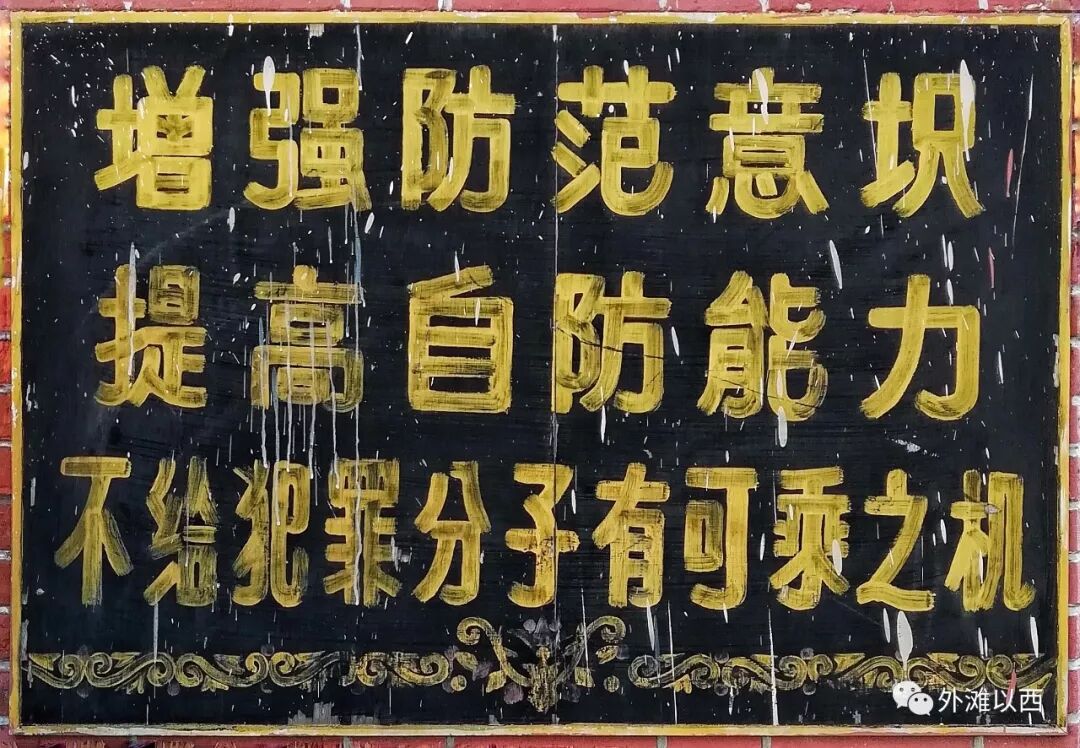 增强防范意识
提高自防能力
不给犯罪分子有可乘之机
外滩以西